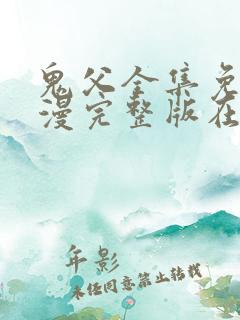 鬼父全集免
漫完整版在
年影
未经同意禁止转载